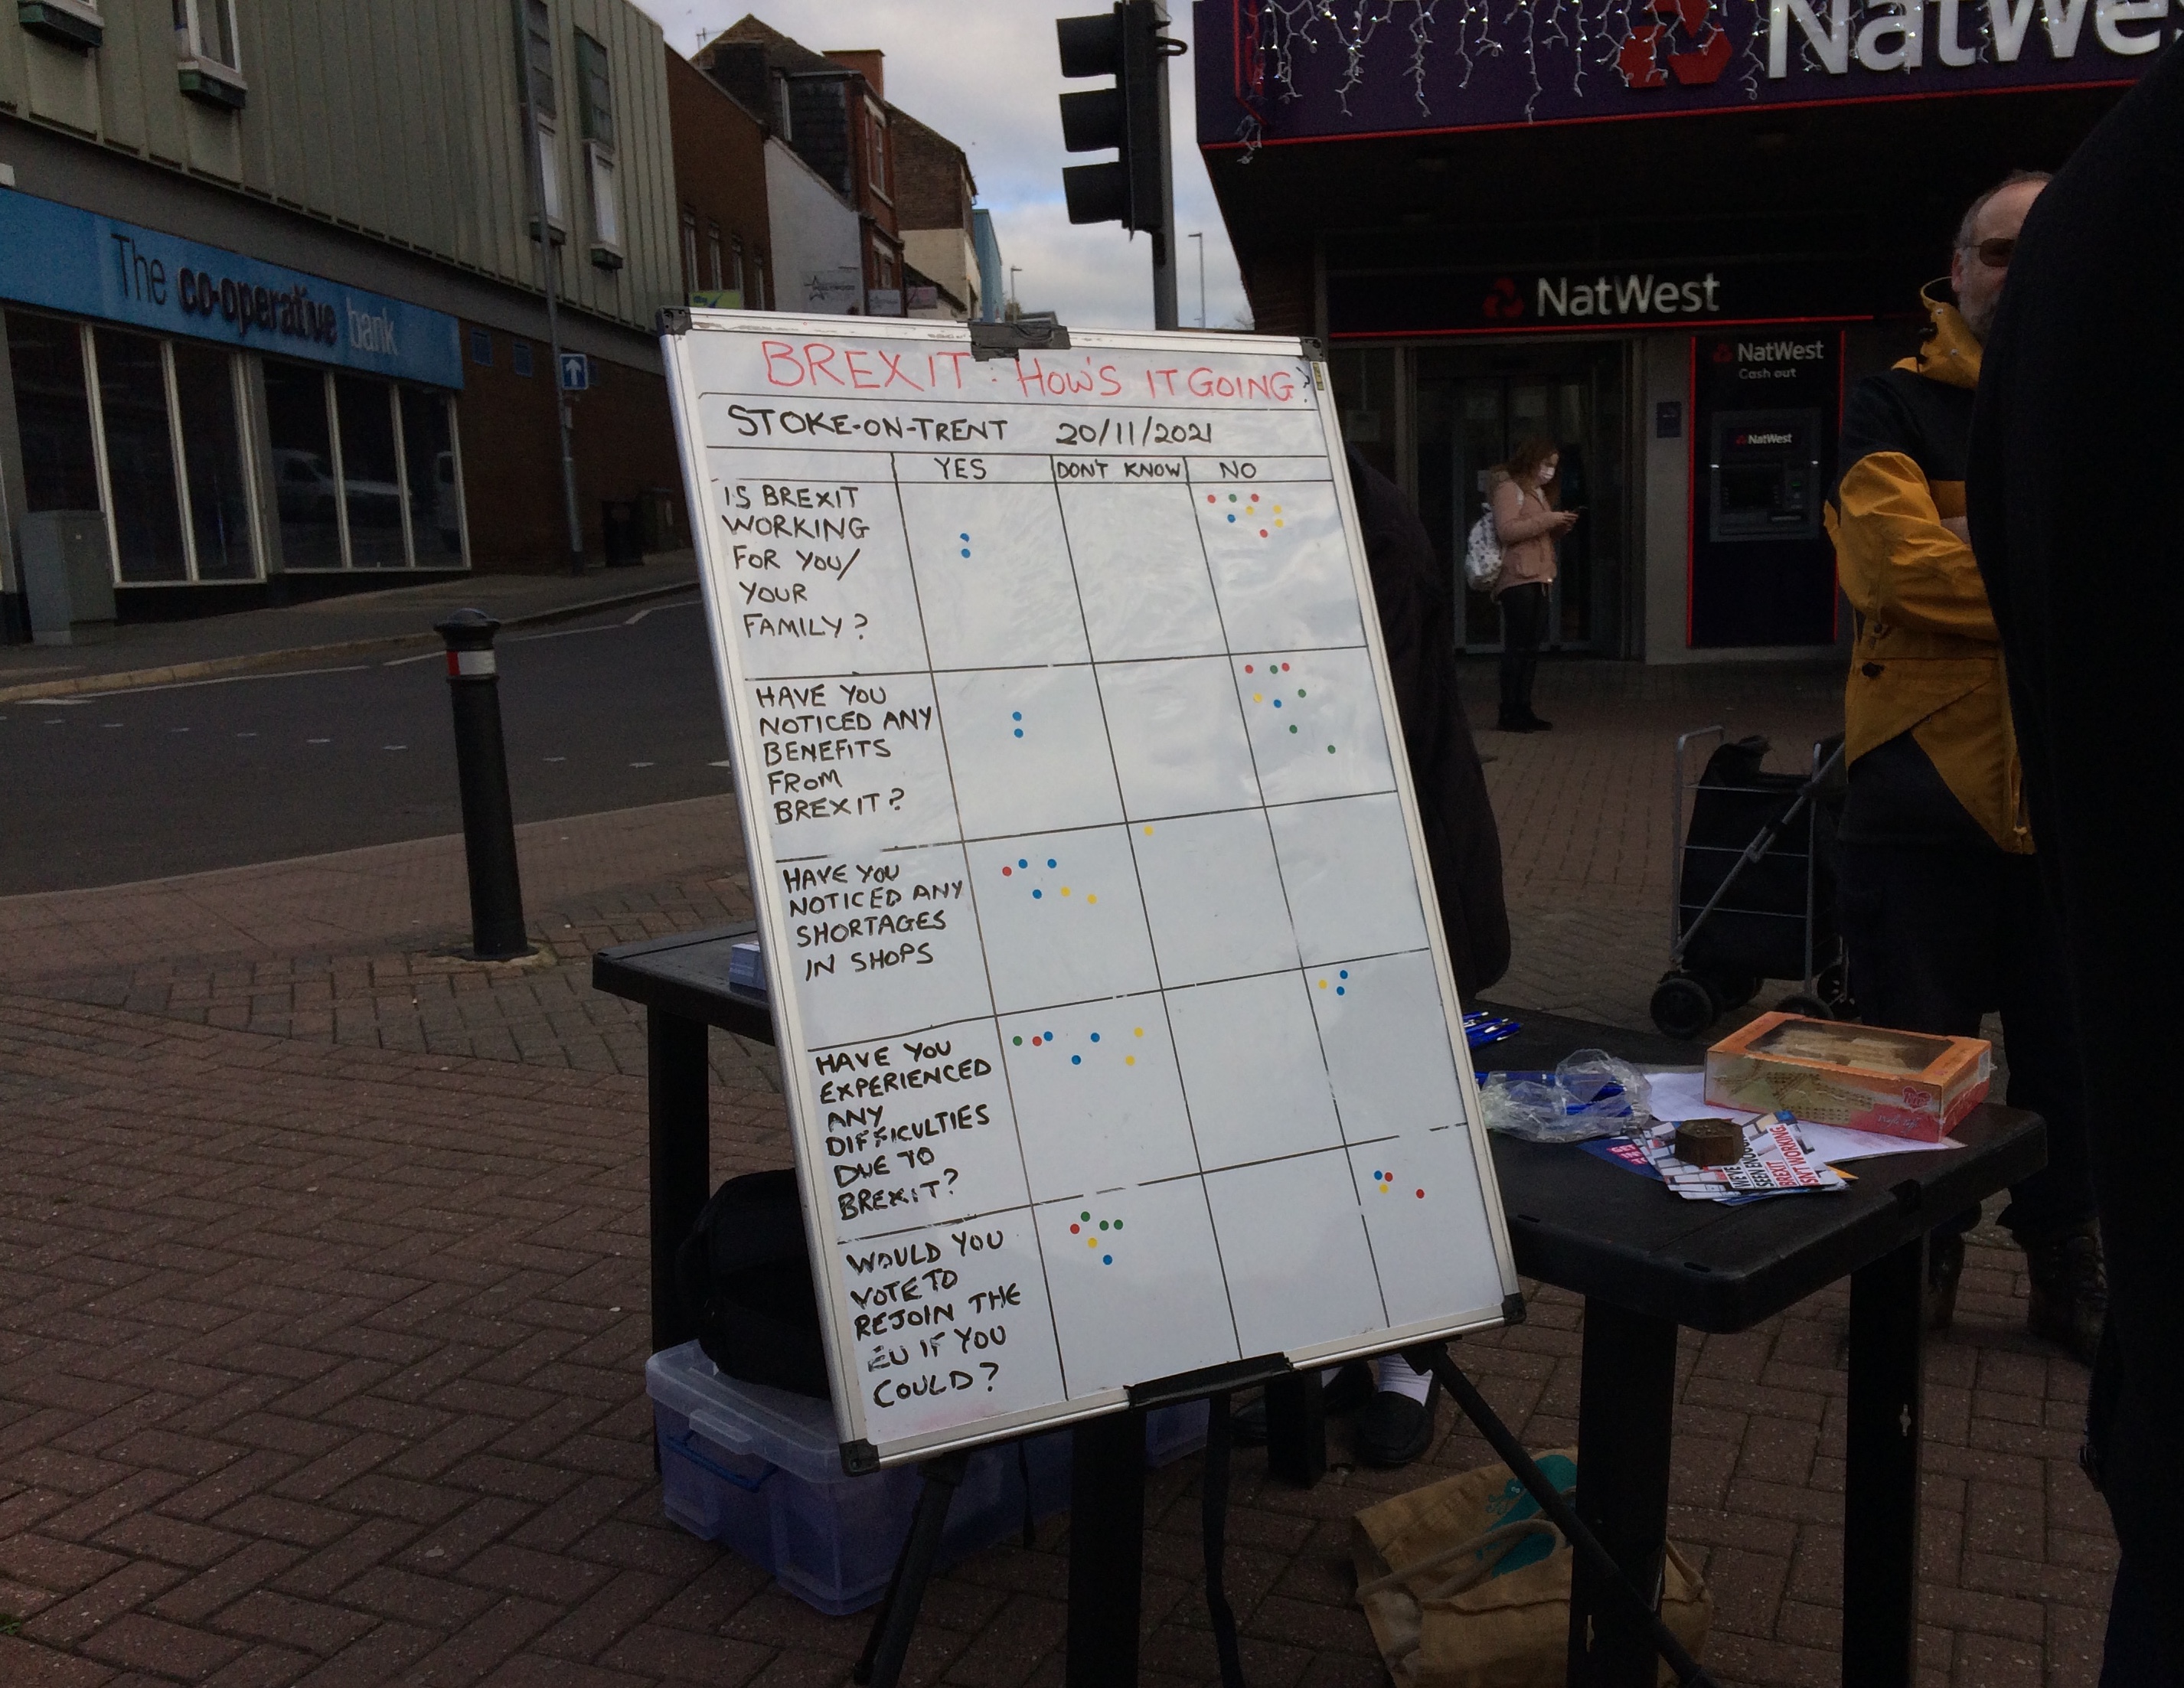 NatWe
The co-operative bank
NatWest
NatWest
Cash out
NatWest
BREXIT: HOW'S IT GOING?
STOKE-ON-TRENT 20/11/2021
YES DON'T KNOW NO
IS BREXIT
WORKING
FOR YOU/
YOUR
FAMILY?
HAVE YOU
NOTICED ANY
BENEFITS
FROM
BREXIT?
HAVE YOU
NOTICED ANY
SHORTAGES
IN SHOPS
HAVE YOU
EXPERIENCED
ANY
DIFFICULTIES
DUE TO
BREXIT?
WOULD YOU
VOTE TO
REJOIN THE
EU IF YOU
COULD?
WE'VE
SEEN ENOU
BREXIT
ISN'T WORKING